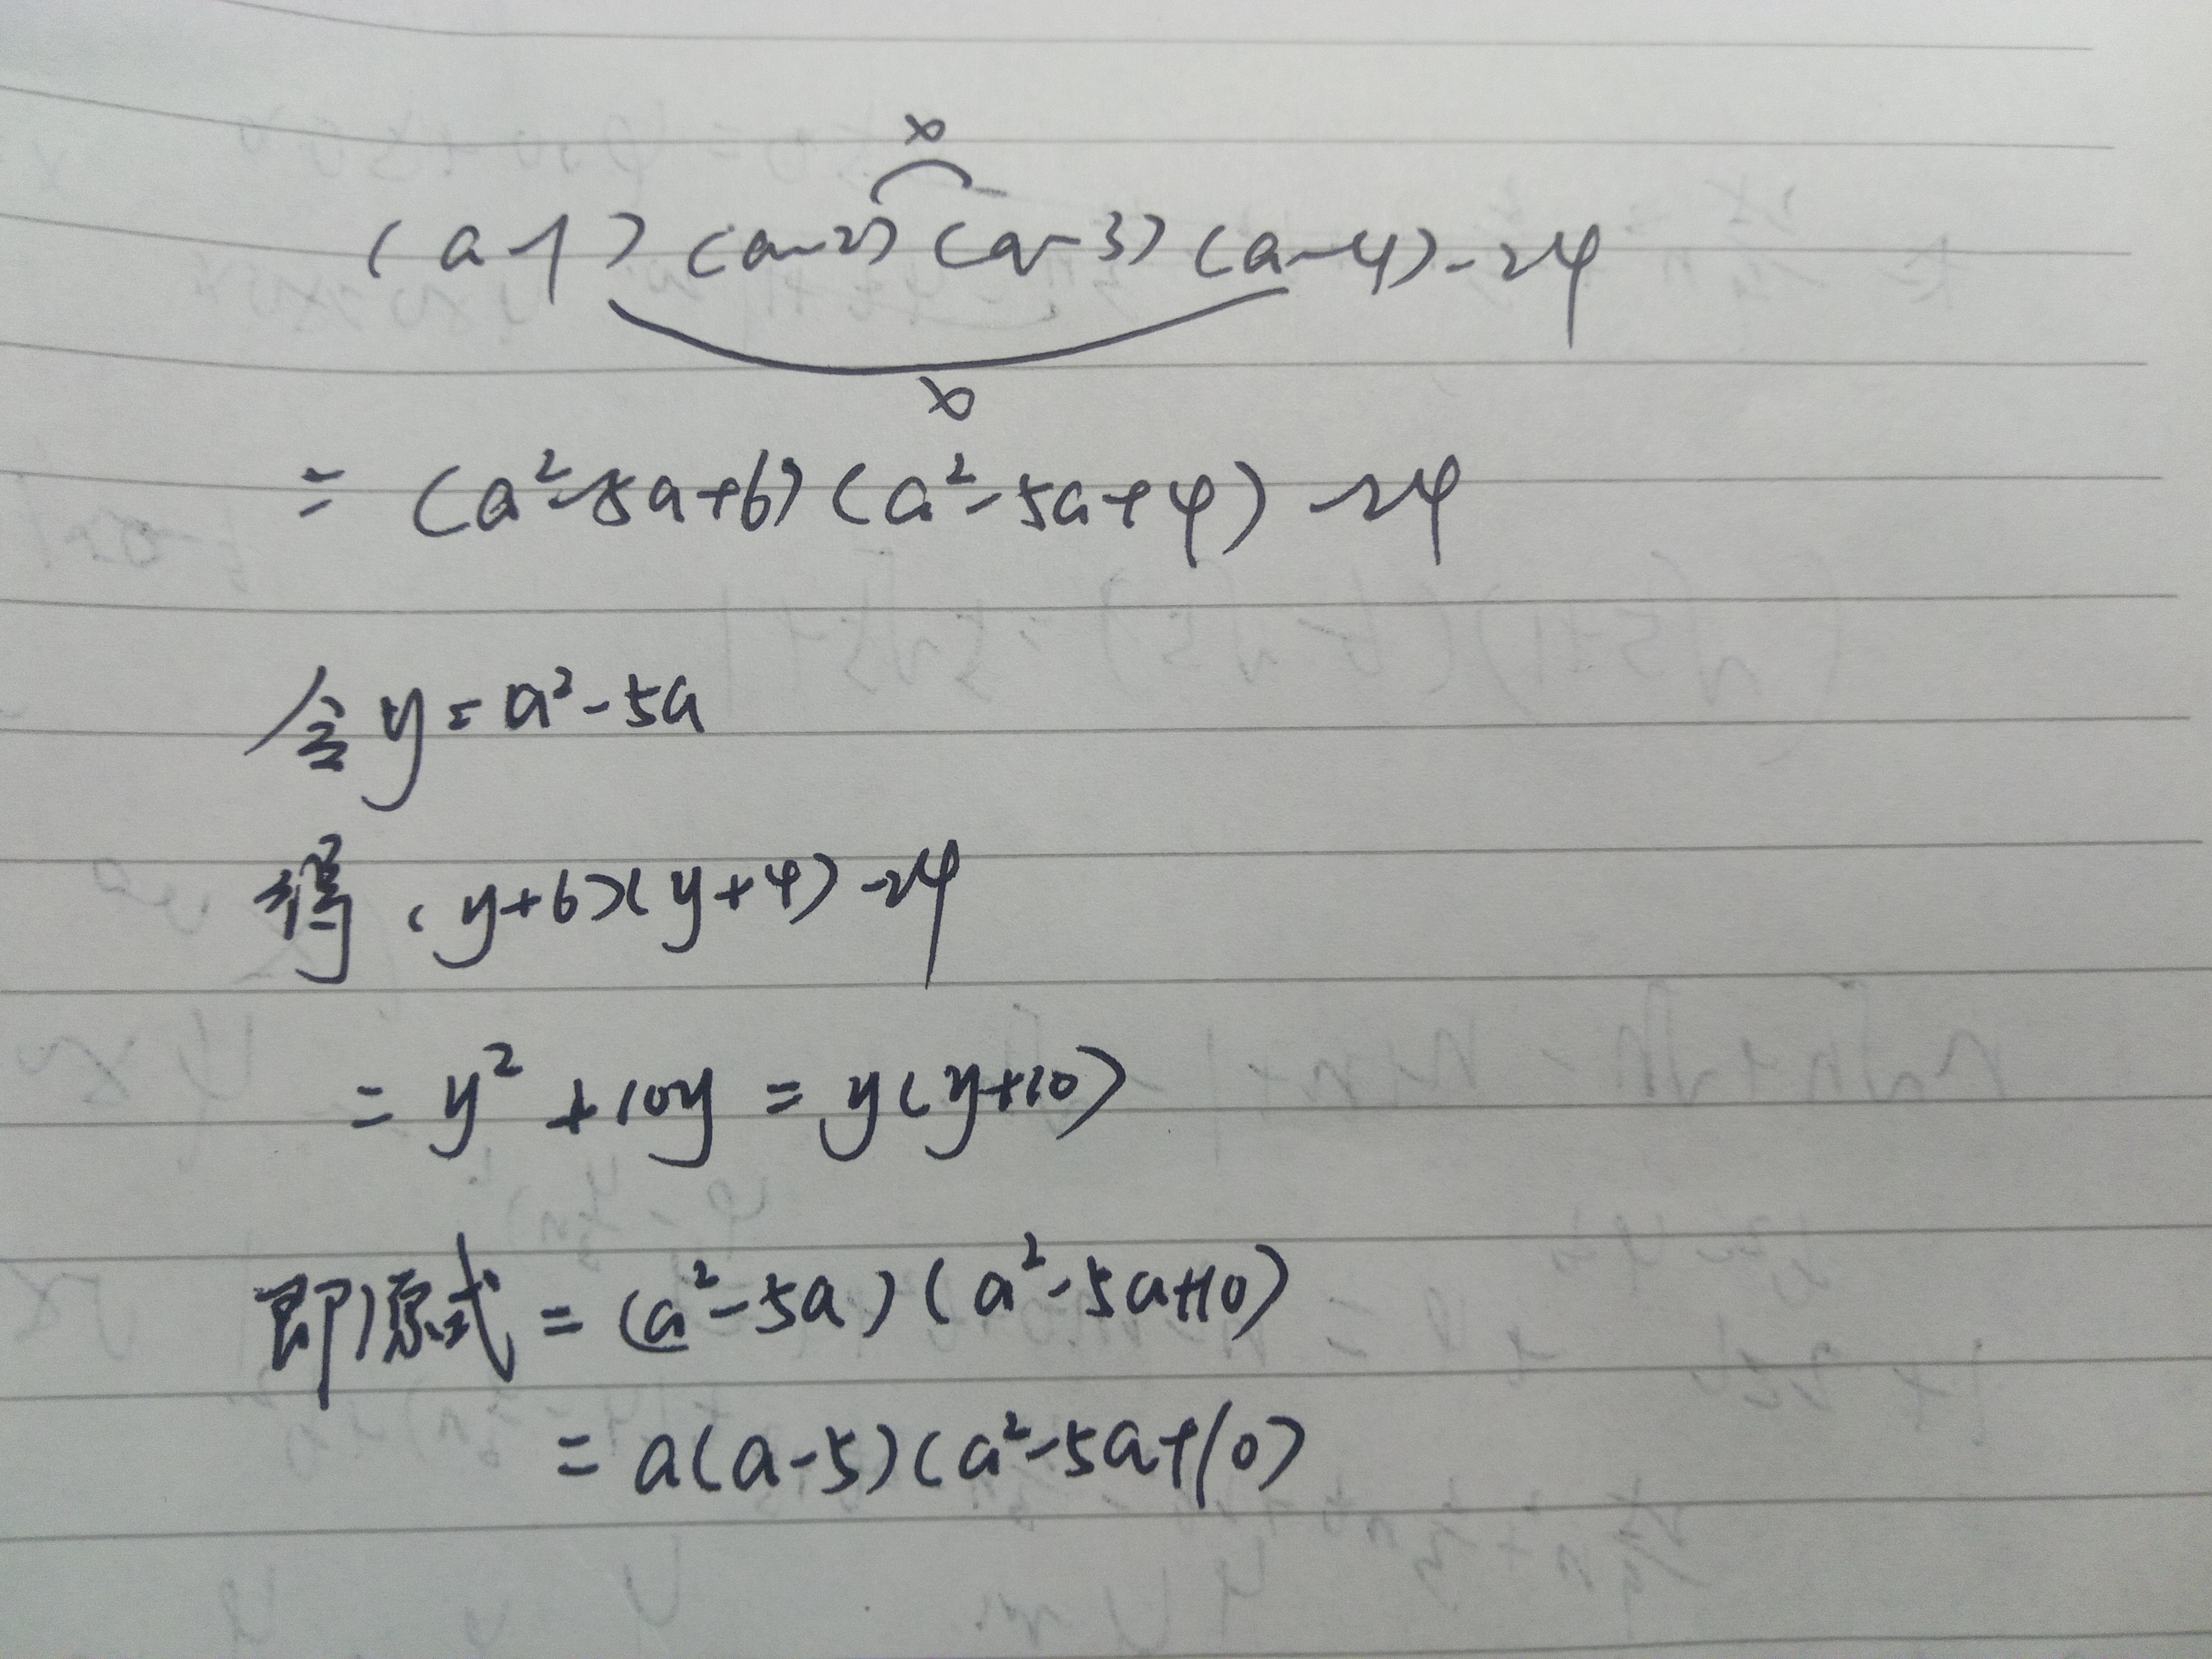 ×
(a-1)(a-2)(a-3)(a-4)-24
×
= (a²-5a+6)(a²-5a+4)-24
令y=a²-5a
得(y+6)(y+4)-24
= y²+10y = y(y+10)
即原式=(a²-5a)(a²-5a+10)
= a(a-5)(a²-5a+10)